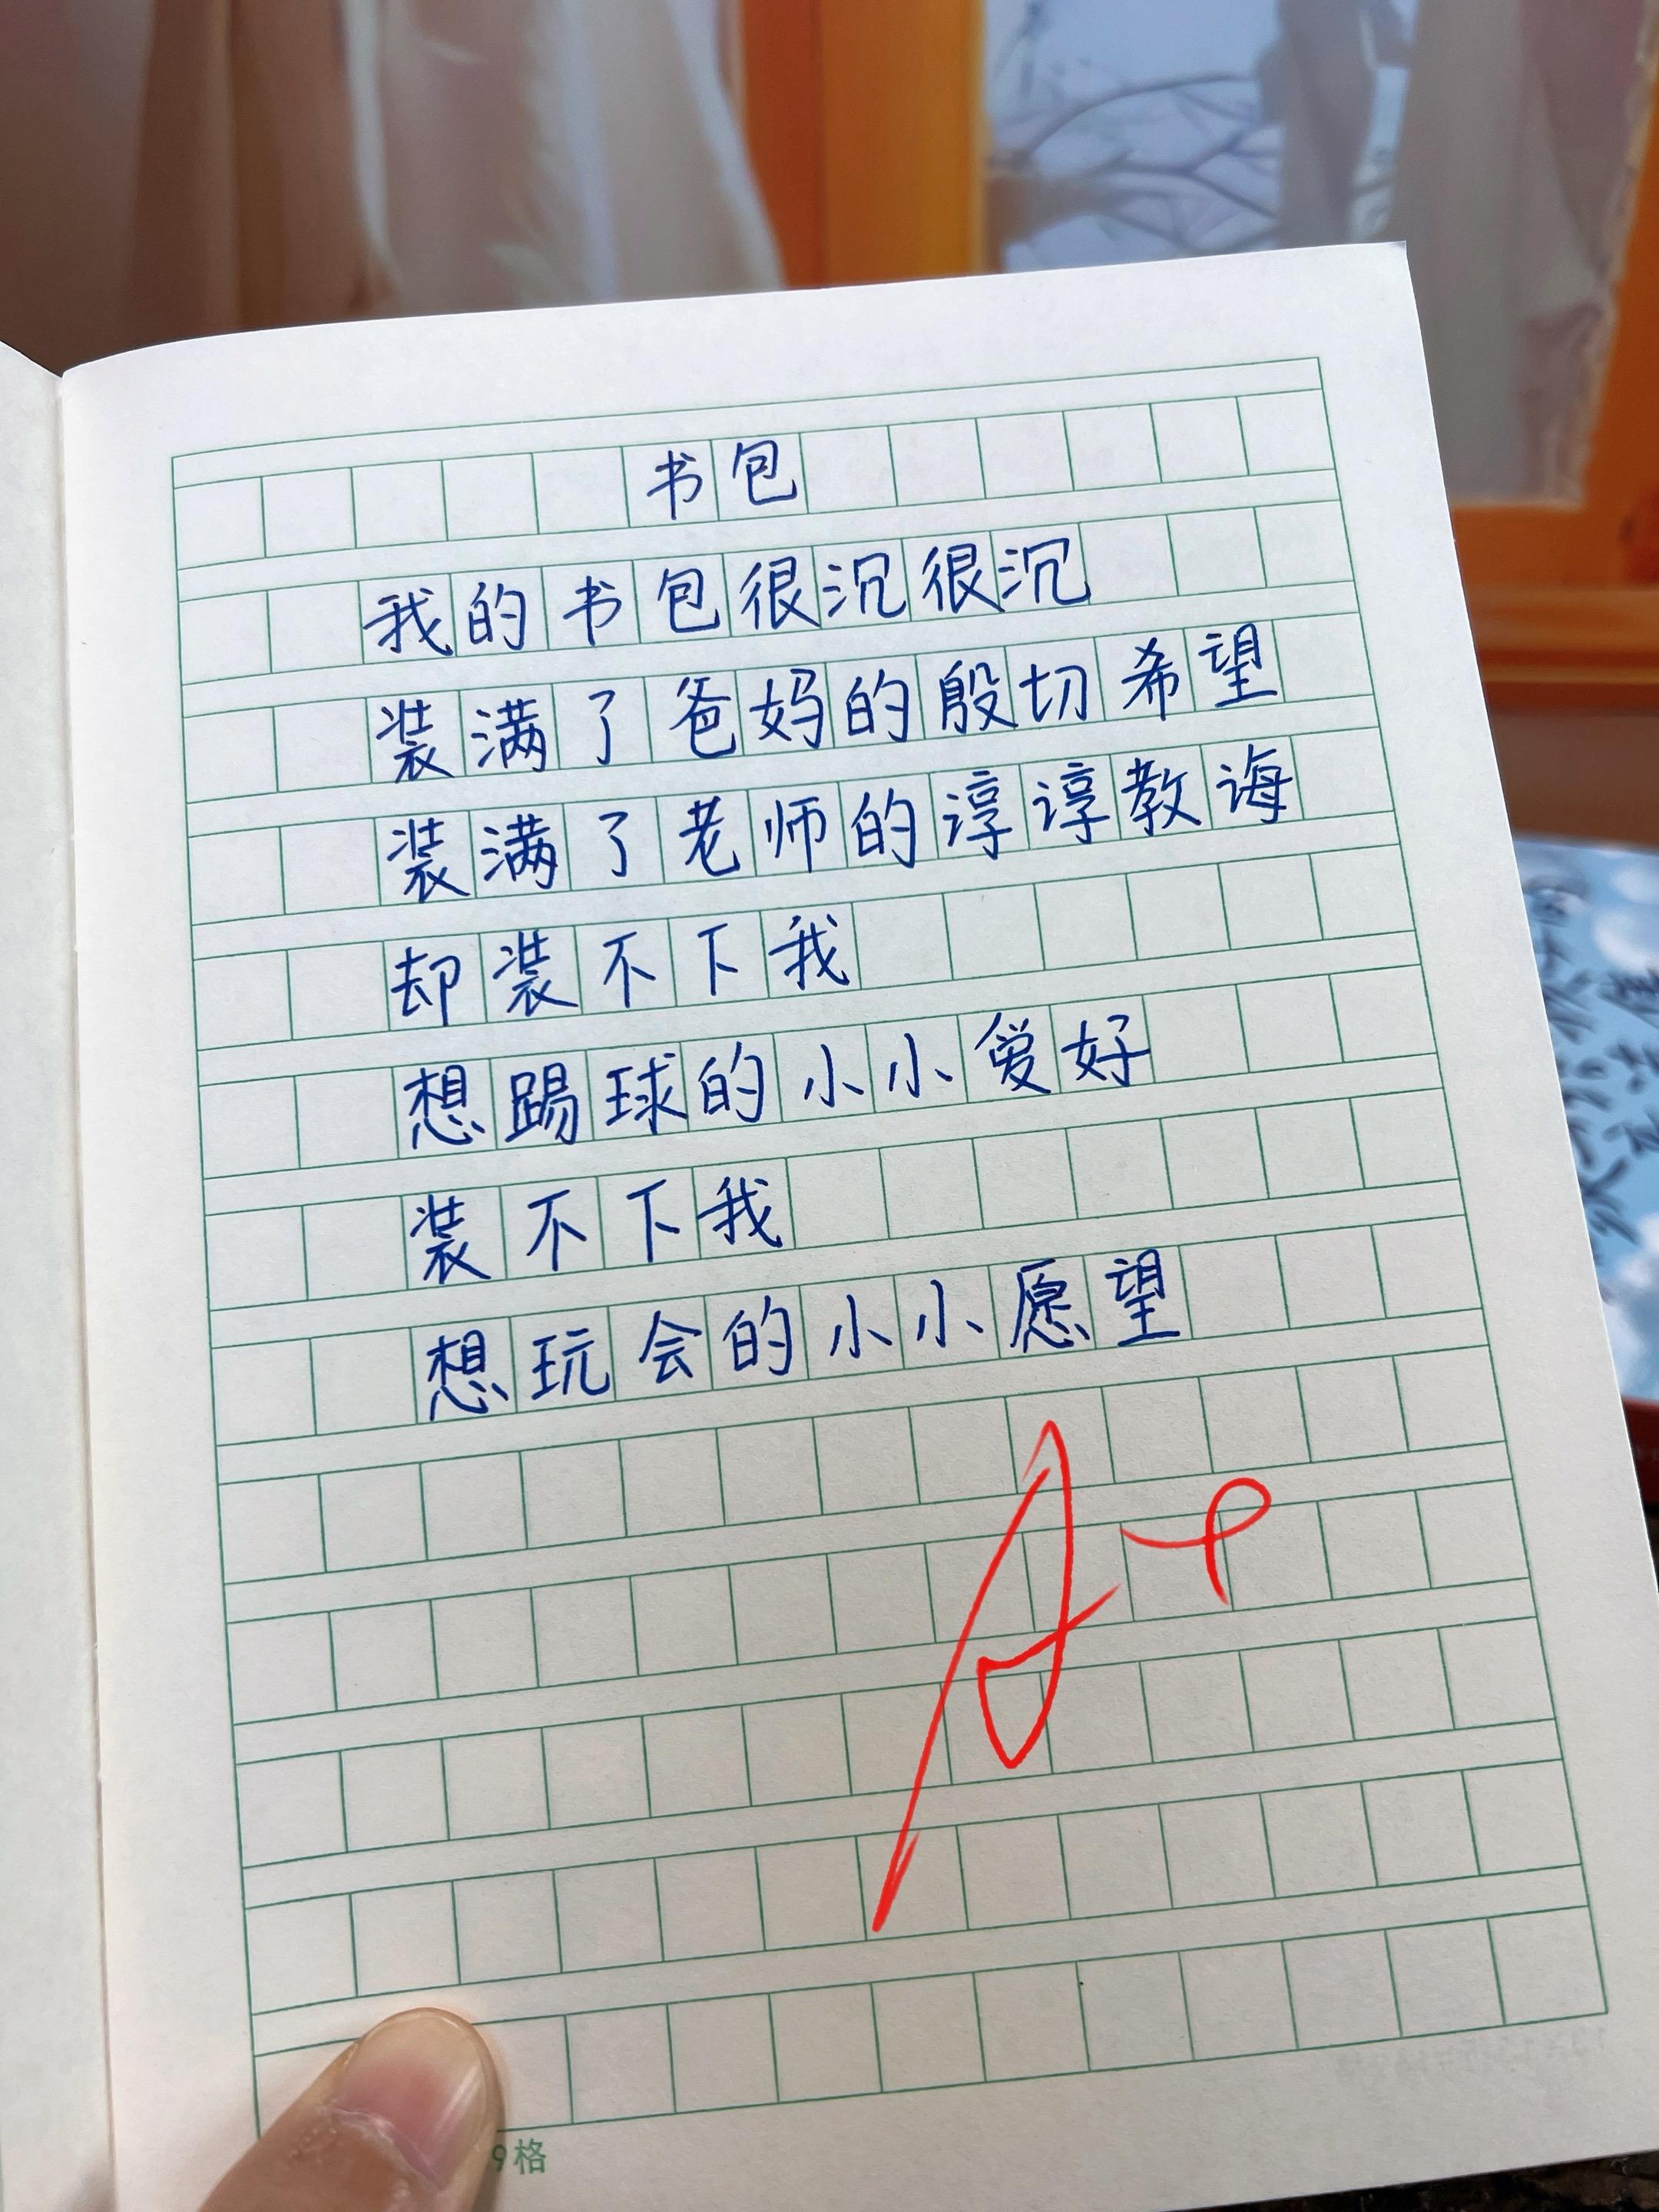 书包
我的书包很沉很沉
装满了爸妈的殷切希望
装满了老师的淳谆教诲
却装不下我
想踢球的小小爱好
装不下我
想玩会的小小愿望
A+
9格